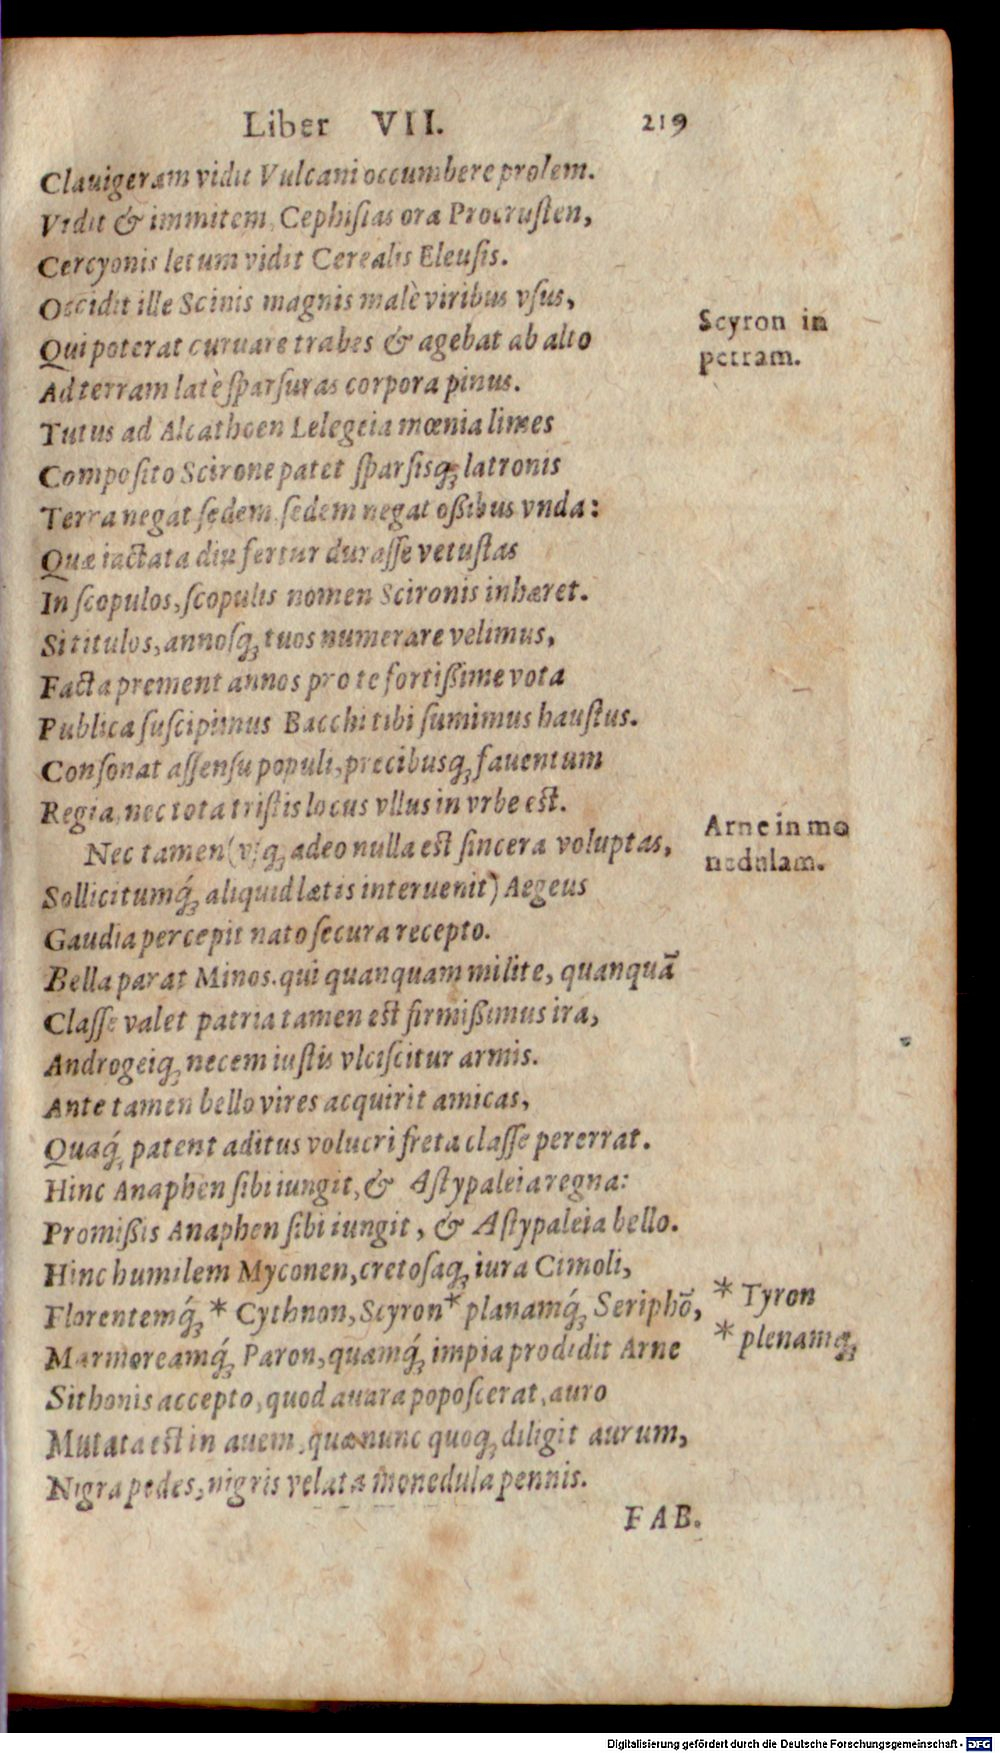 Liber VII. 219
Clauigeram vidit Vulcani occumbere prolem.
Vidit & immitem, Cephisias ora Procrusten,
Cercyonis letum vidit Cerealis Eleusis.
Occidit ille Scinis magnis malè viribus vsus,
Qui poterat curuare trabes & agebat ab alto
Ad terram latè sparsuras corpora pinus.
Tutus ad Alcathoen Lelegeia mœnia limes
Composito Scirone patet sparsisq; latronis
Terra negat sedem, sedem negat oßibus vnda:
Quæ iactata diu fertur durasse vetustas
In scopulos, scopulis nomen Scironis inhæret.
Si titulos, annosq; tuos numerare velimus,
Facta prement annos pro te fortißime vota
Publica suscipimus Bacchi tibi sumimus haustus.
Consonat assensu populi, precibusq; fauentum
Regia, nec tota tristis locus vllus in vrbe est.
Nec tamen (vsq; adeo nulla est sincera voluptas,
Sollicitumq́; aliquid lætis interuenit) Aegeus
Gaudia percepit nato secura recepto.
Bella parat Minos. qui quanquam milite, quanquã
Classe valet patria tamen est firmißimus ira,
Androgeiq; necem iustis vlciscitur armis.
Ante tamen bello vires acquirit amicas,
Quaq́; patent aditus volucri freta classe pererrat.
Hinc Anaphen sibi iungit, & Astypaleia regna:
Promißis Anaphen sibi iungit, & Astypaleia bello.
Hinc humilem Myconen, cretosaq; iura Cimoli,
Florentemq́; * Cythnon, Scyron * planamq́; Seriphõ,
Marmoreamq́; Paron, quamq́; impia prodidit Arne
Sithonis accepto, quod auara poposcerat, auro
Mutata est in auem, quæ nunc quoq; diligit aurum,
Nigra pedes, nigris velata monedula pennis.
FAB.
Scyron in
petram.
Arne in mo
nedulam.
* Tyron
* plenamq;
Digitalisierung gefördert durch die Deutsche Forschungsgemeinschaft - DFG